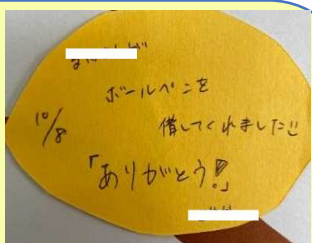 が
ボールペンを
10/8
貸してくれました!!
「ありがとう!」